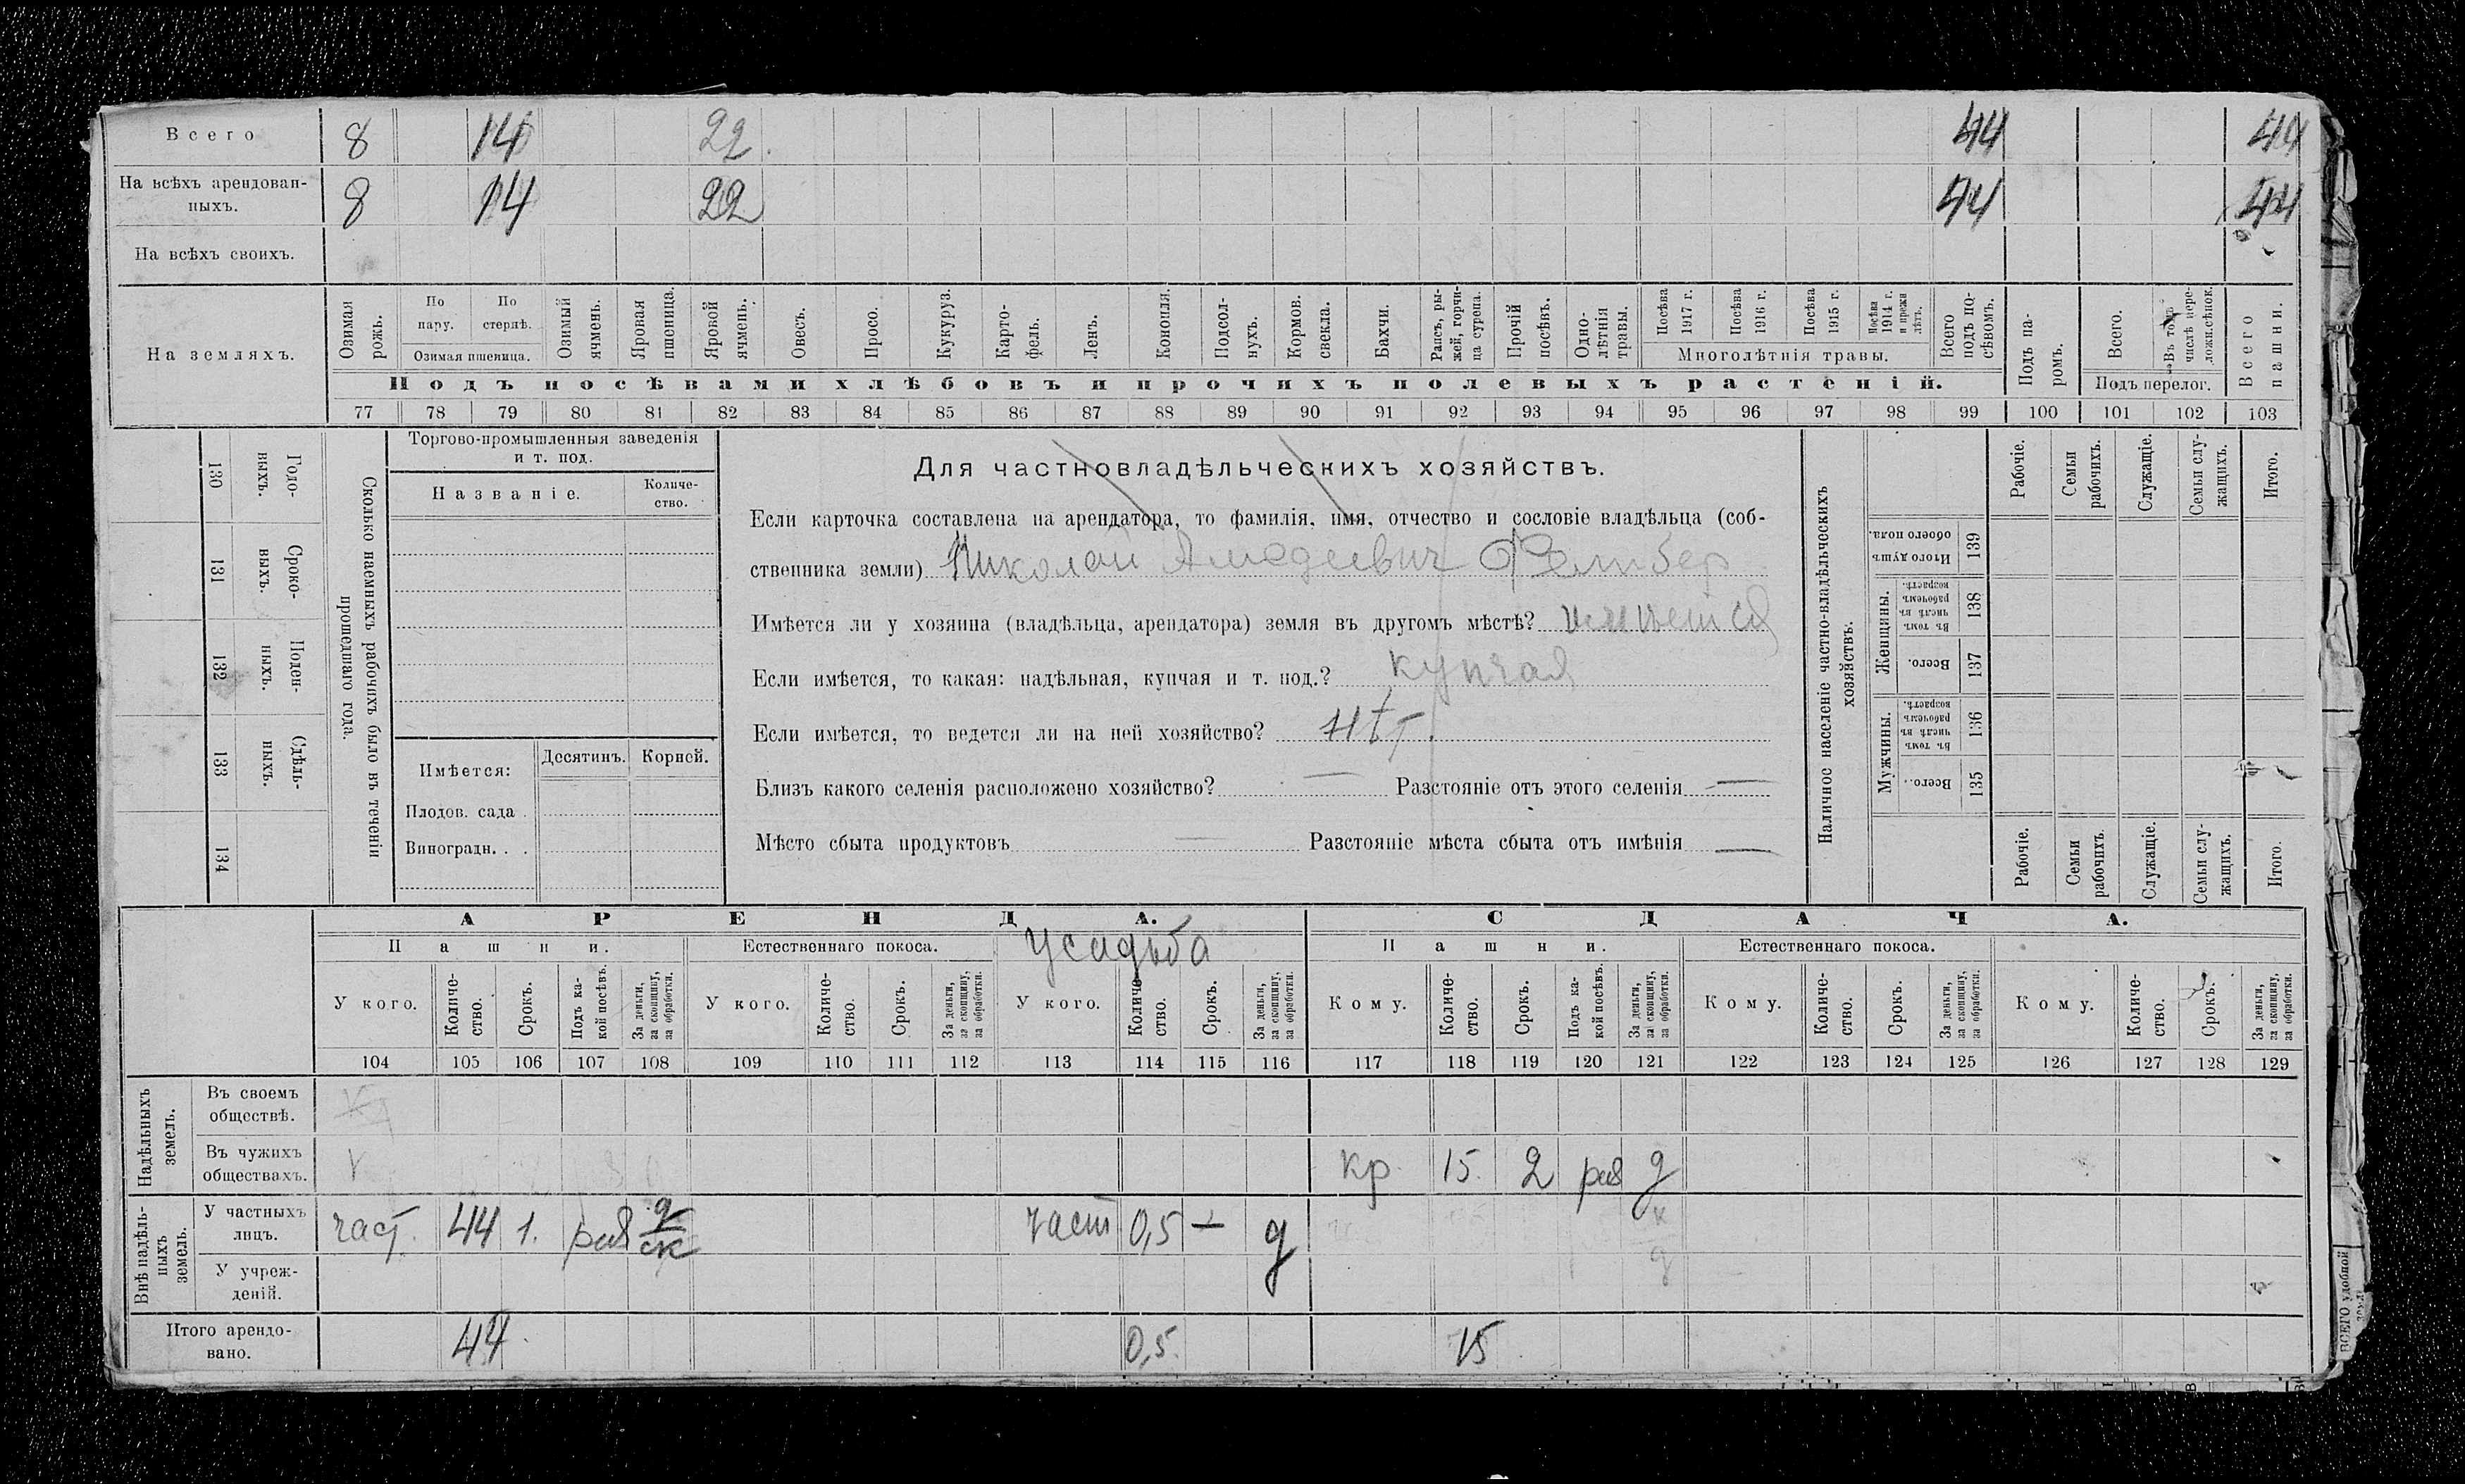 Всего 8 14 22. 44 44
На всѣхъ арендован-
ныхъ. 8 14 22 44 44
На всѣхъ своихъ.
На земляхъ.
Озимая рожь.
По пару.
По стернѣ.
Озимая пшеница.
Озимый ячмень.
Яровая пшеница.
Яровой ячмень.
Овесъ.
Просо.
Кукуруз.
Карто-
фель.
Ленъ.
Конопля.
Подсол-
нухъ.
Кормов.
свекла.
Бахчи.
Рапсъ, ры-
жей, горчи-
ца сурепа.
Прочій
посѣвъ.
Одно-
лѣтнія
травы.
Посѣва
1917 г.
Посѣва
1916 г.
Посѣва
1915 г.
Посѣва
1914 г.
и прежн
лѣтъ.
Многолѣтнія травы.
Всего
подъ по-
сѣвомъ.
Подъ па-
ромъ.
Всего.
Въ томъ
числѣ пере-
ложн.сѣнок.
Подъ перелог.
Всего
пашни.
Подъ посѣвами хлѣбовъ и прочихъ полевыхъ растеній.
77 78 79 80 81 82 83 84 85 86 87 88 89 90 91 92 93 94 95 96 97 98 99 100 101 102 103
130 Годо-
выхъ.
131 Сроко-
ныхъ.
132 Поден-
ныхъ.
133 Сдѣль-
ныхъ.
134
Сколько наемныхъ рабочихъ было въ теченіи
прошедшаго года.
Торгово-промышленныя заведенія
и т. под.
Названіе.
Количе-
ство.
Имѣется: Десятинъ. Корней.
Плодов. сада .
Виноградн. . .
Для частновладѣльческихъ хозяйствъ.
Если карточка составлена на арендатора, то фамилія, имя, отчество и сословіе владѣльца (соб-
ственника земли) Николай Амедеевич
Имѣется ли у хозяина (владѣльца, арендатора) земля въ другомъ мѣстѣ? имѣется
Если имѣется, то какая: надѣльная, купчая и т. под.? купчая
Если имѣется, то ведется ли на ней хозяйство? нѣт.
Близъ какого селенія расположено хозяйство? — Разстояніе отъ этого селенія —
Мѣсто сбыта продуктовъ — Разстояніе мѣста сбыта отъ имѣнія —
Наличное населеніе частно-владѣльческихъ
хозяйствъ.
Рабочіе.
Семьи
рабочихъ.
Служащіе.
Семьи слу-
жащихъ.
Итого.
Итого душъ
обоего пола.
139
Женщины.
Въ томъ
числѣ въ
рабочемъ
возрастѣ.
138
Всего.
137
Мужчины.
Въ томъ
числѣ въ
рабочемъ
возрастѣ.
136
Всего.
135
Рабочіе.
Семьи
рабочихъ.
Служащіе.
Семьи слу-
жащихъ.
Итого.
АРЕНДА. СДАЧА.
Пашни. Естественнаго покоса. Усадьба Пашни. Естественнаго покоса.
У кого.
Количе-
ство.
Срокъ.
Подъ ка-
кой посѣвъ.
За деньги,
за скопщину,
за обработки.
У кого.
Количе-
ство.
Срокъ.
За деньги,
за скопщину,
за обработки.
У кого.
Количе-
ство.
Срокъ.
За деньги,
за скопщину,
за обработки.
Кому.
Количе-
ство.
Срокъ.
Подъ ка-
кой посѣвъ.
За деньги,
за скопщину,
за обработки.
Кому.
Количе-
ство.
Срокъ.
За деньги,
за скопщину,
за обработки.
Кому.
Количе-
ство.
Срокъ.
За деньги,
за скопщину,
за обработки.
104 105 106 107 108 109 110 111 112 113 114 115 116 117 118 119 120 121 122 123 124 125 126 127 128 129
Надѣльныхъ
земель.
Въ своемъ
обществѣ.
Въ чужихъ
обществахъ. кр 15. 2 раз д
Внѣ надѣль-
ныхъ
земель.
У частныхъ
лицъ. част. 44 1. раз д
ск част 0,5 — д
У учреж-
деній.
Итого арендо-
вано. 44 0,5. 15
ВСЕГО удобной